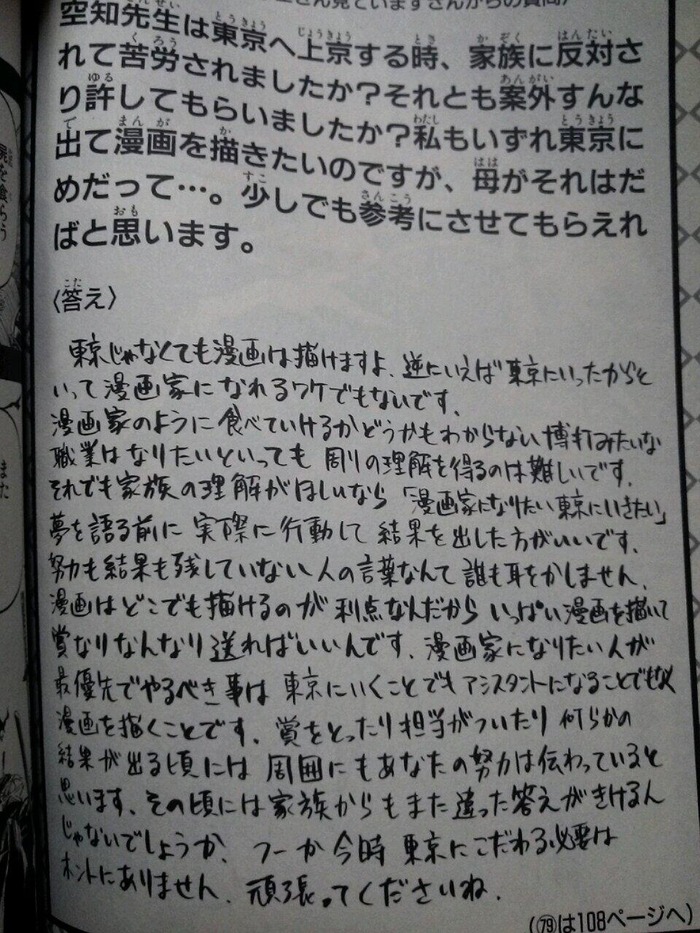 さん見ていますさんからの質問
空知先生は東京へ上京する時、家族に反対さ
れて苦労されましたか？それとも案外すんな
り許してもらいましたか？私もいずれ東京に
出て漫画を描きたいのですが、母がそれはだ
めだって…。少しでも参考にさせてもらえれ
ばと思います。
〈答え〉
東京じゃなくても漫画は描けますよ、逆にいえば東京にいったからと
いって漫画家になれるワケでもないです。
漫画家のように食べていけるかどうかもわからない博打みたいな
職業はなりたいといっても周りの理解を得るのは難しいです。
それでも家族の理解がほしいなら「漫画家になりたい東京にいきたい」
夢を語る前に実際に行動して結果を出した方がいいです。
努力も結果も残していない人の言葉なんて誰も耳をかしません。
漫画はどこでも描けるのが利点なんだからいっぱい漫画を描いて
賞なりなんなり送ればいいんです。漫画家になりたい人が
最優先でやるべき事は東京にいくことでもアシスタントになることでもなく
漫画を描くことです。賞をとったり担当がついたり何らかの
結果が出る頃には周囲にもあなたの努力は伝わっていると
思います。その頃には家族からもまた違った答えがきけるん
じゃないでしょうか、つーか今時東京にこだわる必要は
ホントにありません。頑張ってくださいね。
(79は108ページへ)
屍を喰らう
また